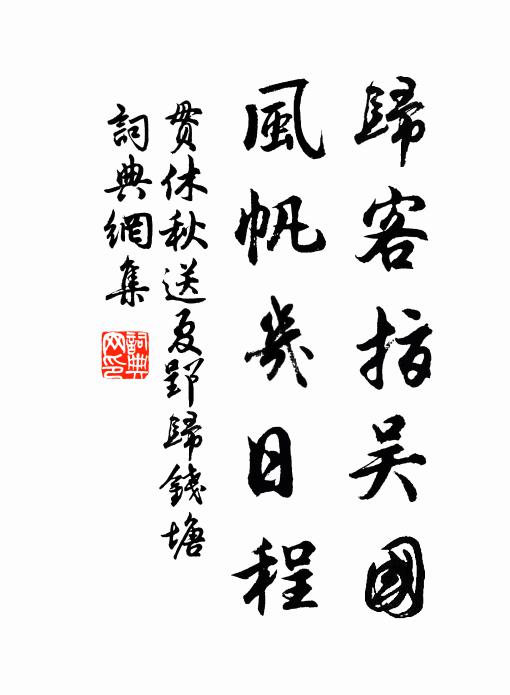 歸客指吳國
風帆幾日程
貫休秋送夏郢歸錢塘
詞典網集
詞典網印